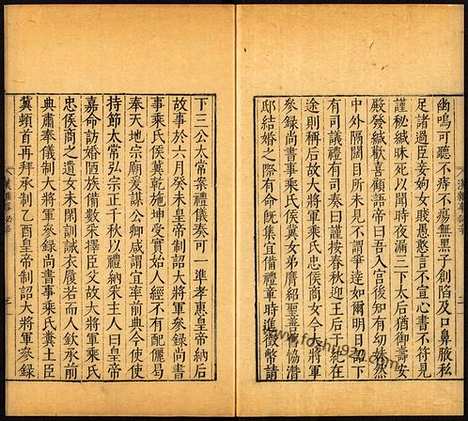 幽鳴可聽不痔不瘍無黑子創陷及口鼻腋私
足諸過臣妾姁女賤愚憨言不宣心書不符見
謹秘緘昧死以聞時夜漏三下太后猶御壽安
殿發緘歡喜顧語帝曰吾
中外隔不謂爭達如
有司議禮有司奏曰謹按春秋迎王后于紀在
途則稱后故大將軍乘氏侯商女今大將軍
參錄尚書事乘氏侯冀女弟膺紹聖善結協潛
邸結婚之際有命既集宜備禮章時進徵幣請
下三公太常案禮儀奏可一準孝惠皇帝納后
故事於六月癸未皇帝制詔大將軍參錄尚書
事乘氏侯冀乾施坤受實始人經不有配儷曷
奉天地宗廟爰謀公卿咸謂宜率前典今使使
持節太常弘宗正千秋以禮納采主人曰皇帝
嘉命訪婚陋族備數采擇臣父故大將軍乘氏
忠侯商之遺女未閑訓誡衣履若而人欽承前
典肅奉儀制大將軍參錄尚書事乘氏侯臣梁
冀頓首再拜承制乙酉皇帝制詔大將軍參錄